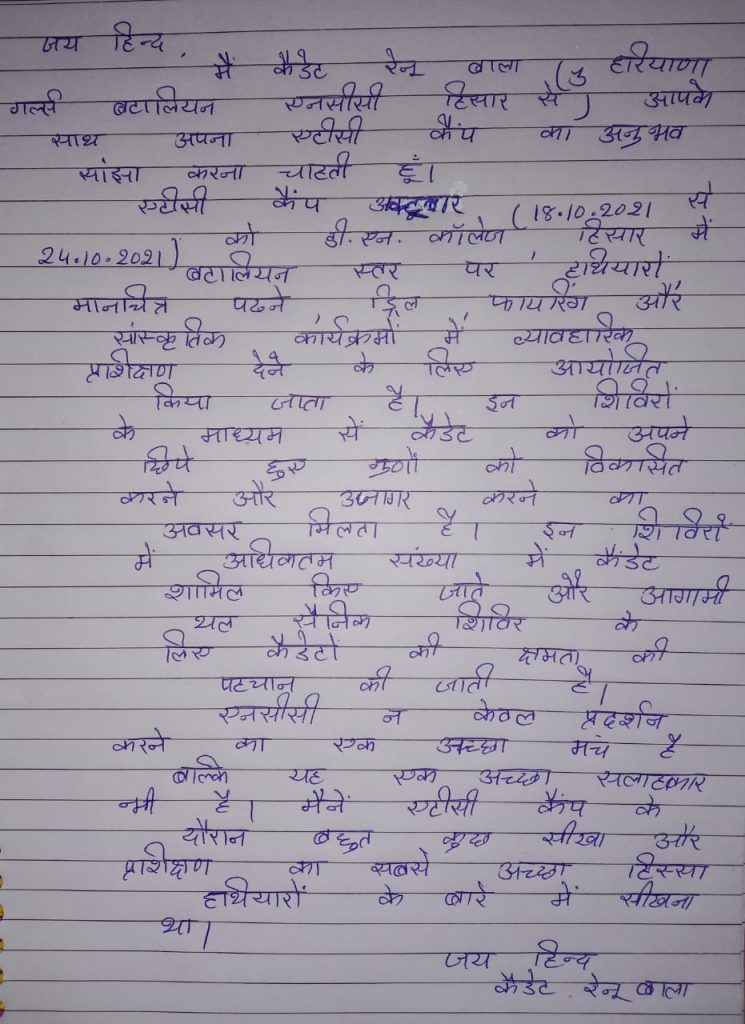 जय हिन्द,
मैं कैडेट रेनू बाला (3 हरियाणा
गर्ल्स बटालियन एनसीसी हिसार से) आपके
साथ अपना एटीसी कैंप का अनुभव
सांझा करना चाहती हूँ।
एटीसी कैंप अक्टूबार (18.10.2021 से
24.10.2021) को डी.एन. कॉलेज हिसार में
बटालियन स्तर पर हथियारों,
मानचित्र पढने, ड्रिल फायरिंग और
सांस्कृतिक कार्यक्रमों में व्यावहारिक
प्रशिक्षण देने के लिए आयोजित
किया जाता है। इन शिविरों
के माध्यम सें कैडेट को अपने
छिपे हुए गुणों को विकासित
करने और उजागर करने का
अवसर मिलता है। इन शिविरों
में अधिकतम संख्या में कैंडेट
शामिल किए जाते और आगामी
थल सैनिक शिविर के
लिए कैडेटों की क्षमता की
पहचान की जाती है।
एनसीसी न केवल प्रदर्शन
करने का एक अच्छा मंच है
बाल्कि यह एक अच्छा सलाहकार
भी है। मैनें एटीसी कैंप के
दौरान बहुत कुछ सीखा और
प्रशिक्षण का सबसे अच्छा हिस्सा
हाथियारों के बारे में सीखना
था।
जय हिन्द
कैडेट रेनू बाला